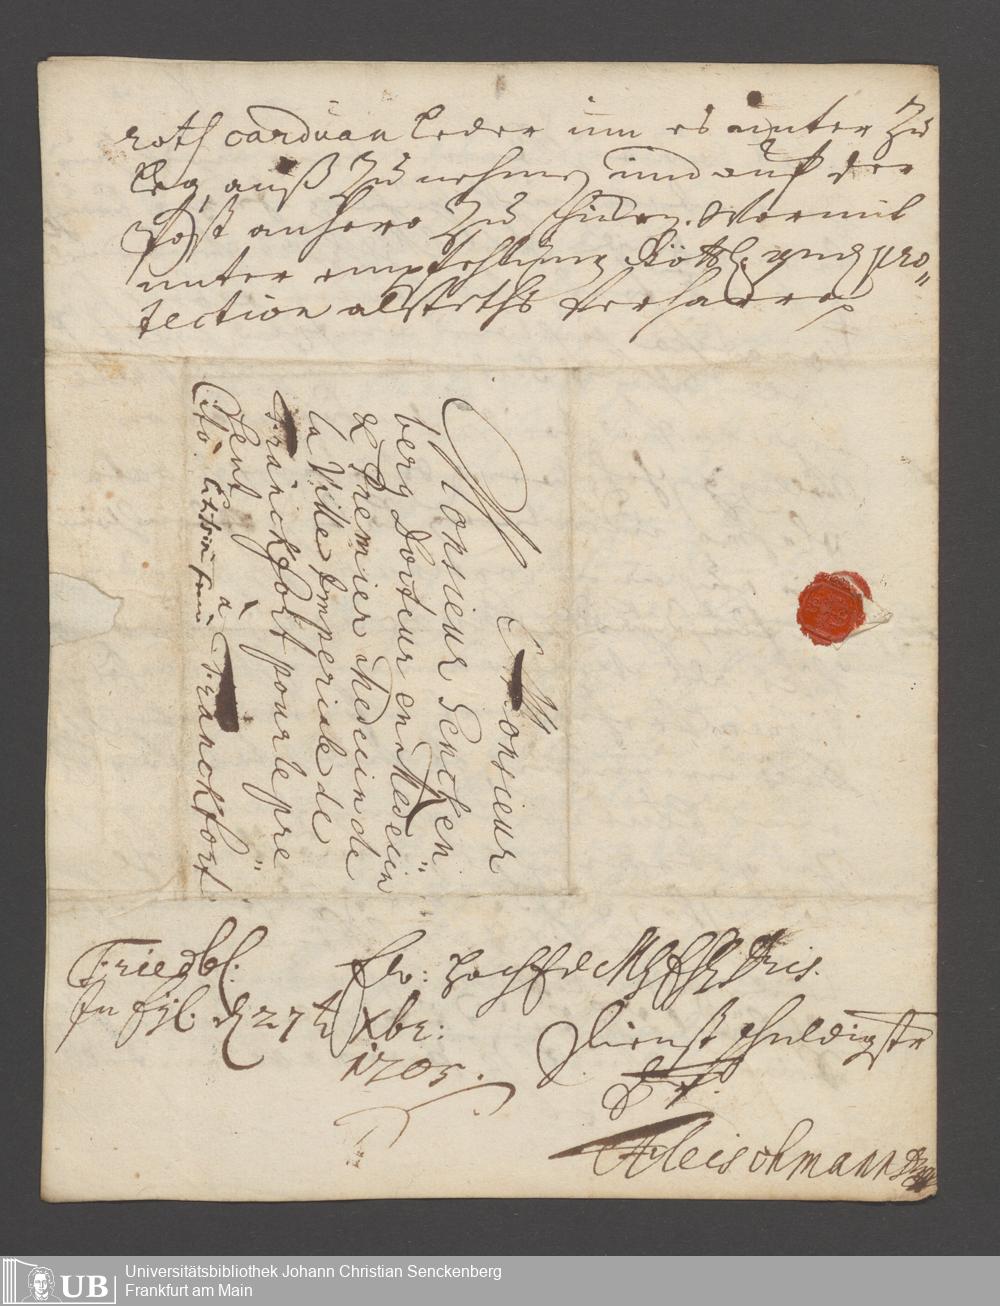 roth corduan leder um es unter zu
leg, auß zu nehmen und auf der
Post anhero zu schicken. Wormit
unter empfehlung Göttl. pro-
tection alsteths verharre
Monsieur
Monsieur Sencken
berg Docteur en Medecin
& Premier Medecin de
la Ville Imperiale de
Franckfort pour le pre
sent à Franckfort
Cito.
Friedbl.
In Eyl. d 27t. Xbr.
1705.
Ew:
Dienstschuldigster
Fleischmann
UB Universitätsbibliothek Johann Christian Senckenberg
Frankfurt am Main